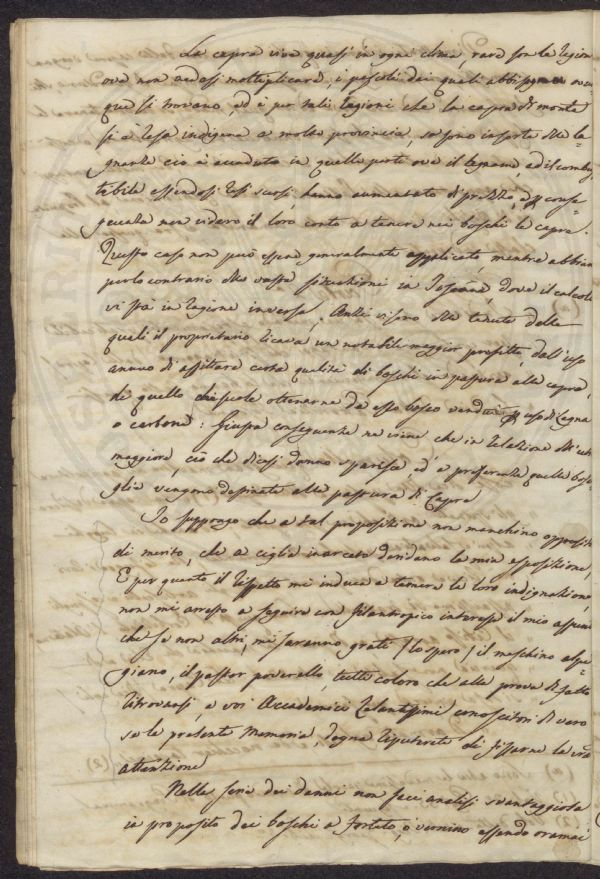 La capra vive quasi in ogni clima, rare son le region
ove non vedesi moltiplicare, i pascoli dei quali abbisogna ovun=
que si trovano, ed è per tali ragioni che la capra di monte
si è resa indigena a molte provincie, se sono insorte delle la=
gnanze ciò è accaduto in quelle parti ove il legname, ed il combu
tibile essendosi resi scarsi, hanno aumentato di prezzo, conse
guenza non videro il loro conto a tenere nei boschi le capre.
Questo caso non può essere generalmente applicato, mentre abbiam
per lo contrario delle vaste situazioni in Toscana, dove il calcolo
vi stà in ragione inversa. Anzi vi sono delle tenute dalle
quali il proprietario ricava un notabile maggior profitto, dall'uso
annuo di affittare certe qualità di boschi in pastura alle capre,
di quello che suole ottenerne da esso bosco venduto uso di Legna
o carbone: Giusta conseguenza ne viene che in relazione dell'utile
maggiore, ciò che dicesi danno sparisce, ed a preferenza quelle bosc
glie vengono destinate alla pastura di Capre
Io suppongo che a tal proposizione non manchino oppositori
di merito, che a ciglia inarcate deridano la mia esposizione,
E per quanto il rispetto mi induca a temere la loro indignazione
non mi arresto a seguire con filantropico interesse il mio assunto
che se non altri, mi saranno grati /lo spero/ il meschino alpi=
giano, il pastor poverello, tutti coloro che alla prova di fatto
ritrovansi, e voi Accademici Zelantissimi conoscitori di vero
se la presente Memoria, degna reputerete di fissarne la vra
attenzione
Nella serie dei danni non feci analisi svantaggiosa
in proposito dei boschi a Forteto, o vernino essendo oramai